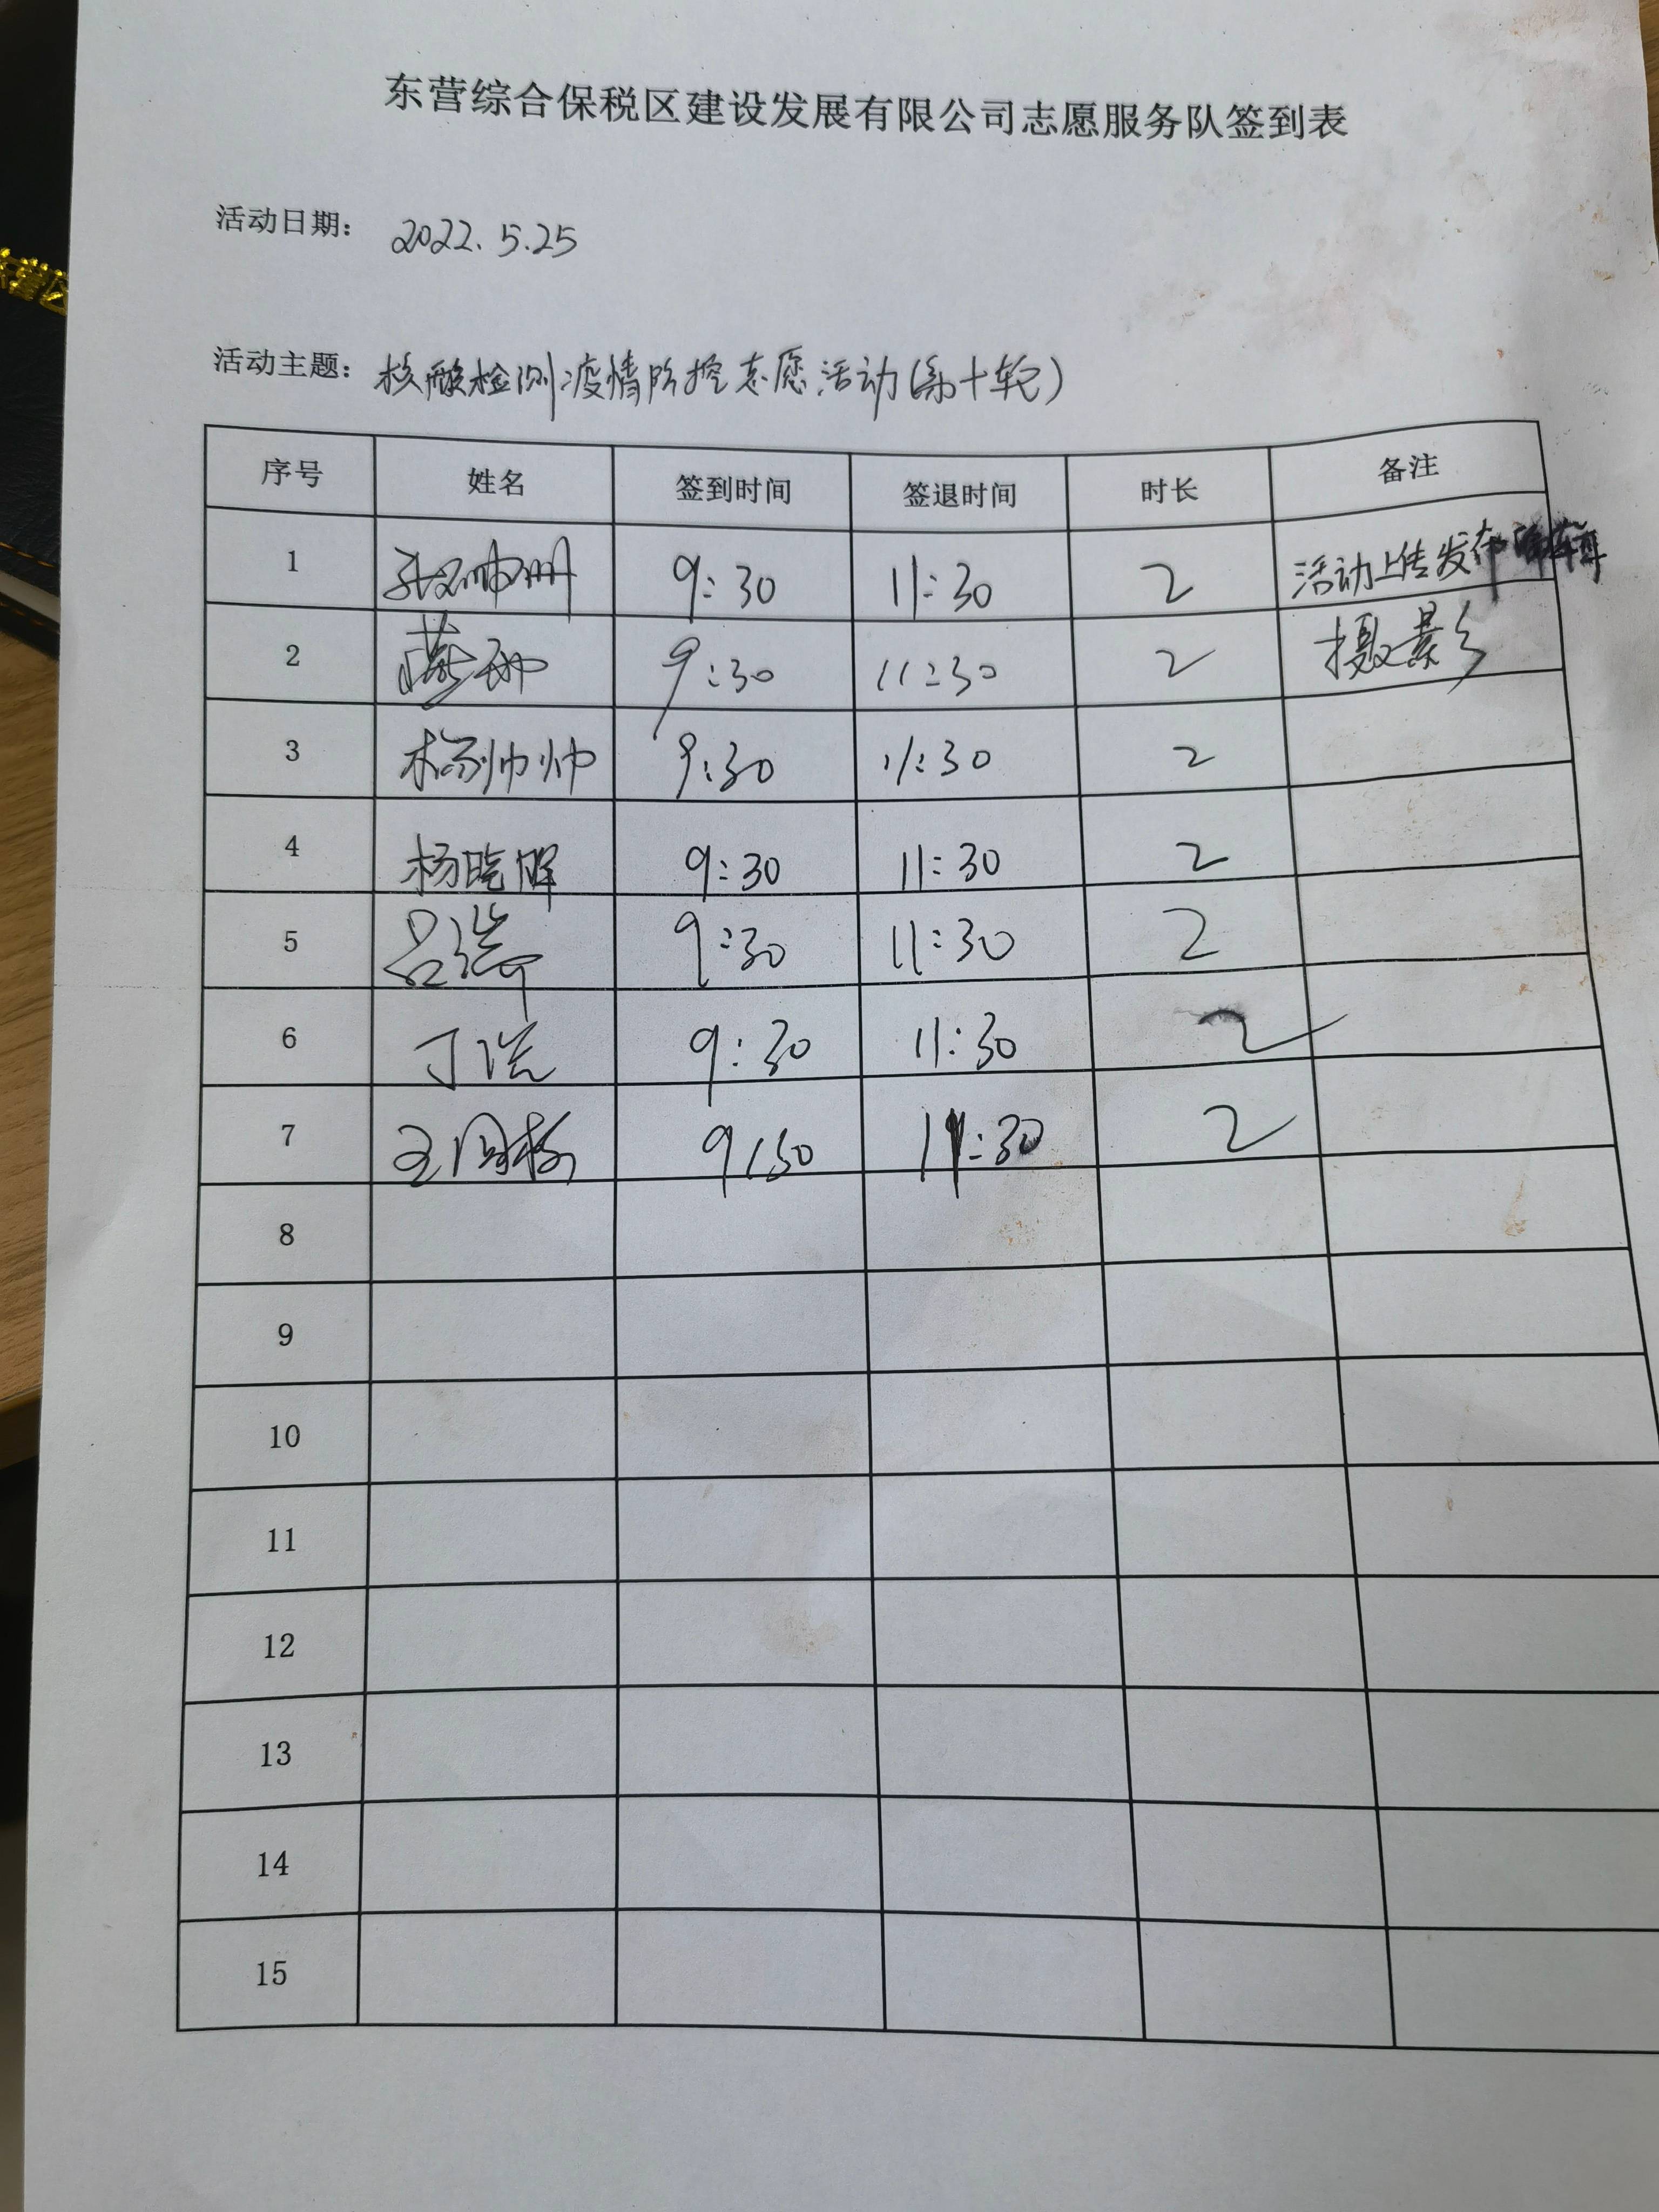 东营综合保税区建设发展有限公司志愿服务队签到表
活动日期： 2022.5.25
活动主题： 核酸检测疫情防控志愿活动(第十轮)
序号 姓名 签到时间 签退时间 时长 备注
1 9:30 11:30 2 活动上传发布
2 9:30 11:30 2 摄影
3 杨帅帅 9:30 11:30 2
4 杨晓晖 9:30 11:30 2
5 吕瑞 9:30 11:30 2
6 丁浩 9:30 11:30 2
7 王国栋 9:30 11:30 2
8
9
10
11
12
13
14
15